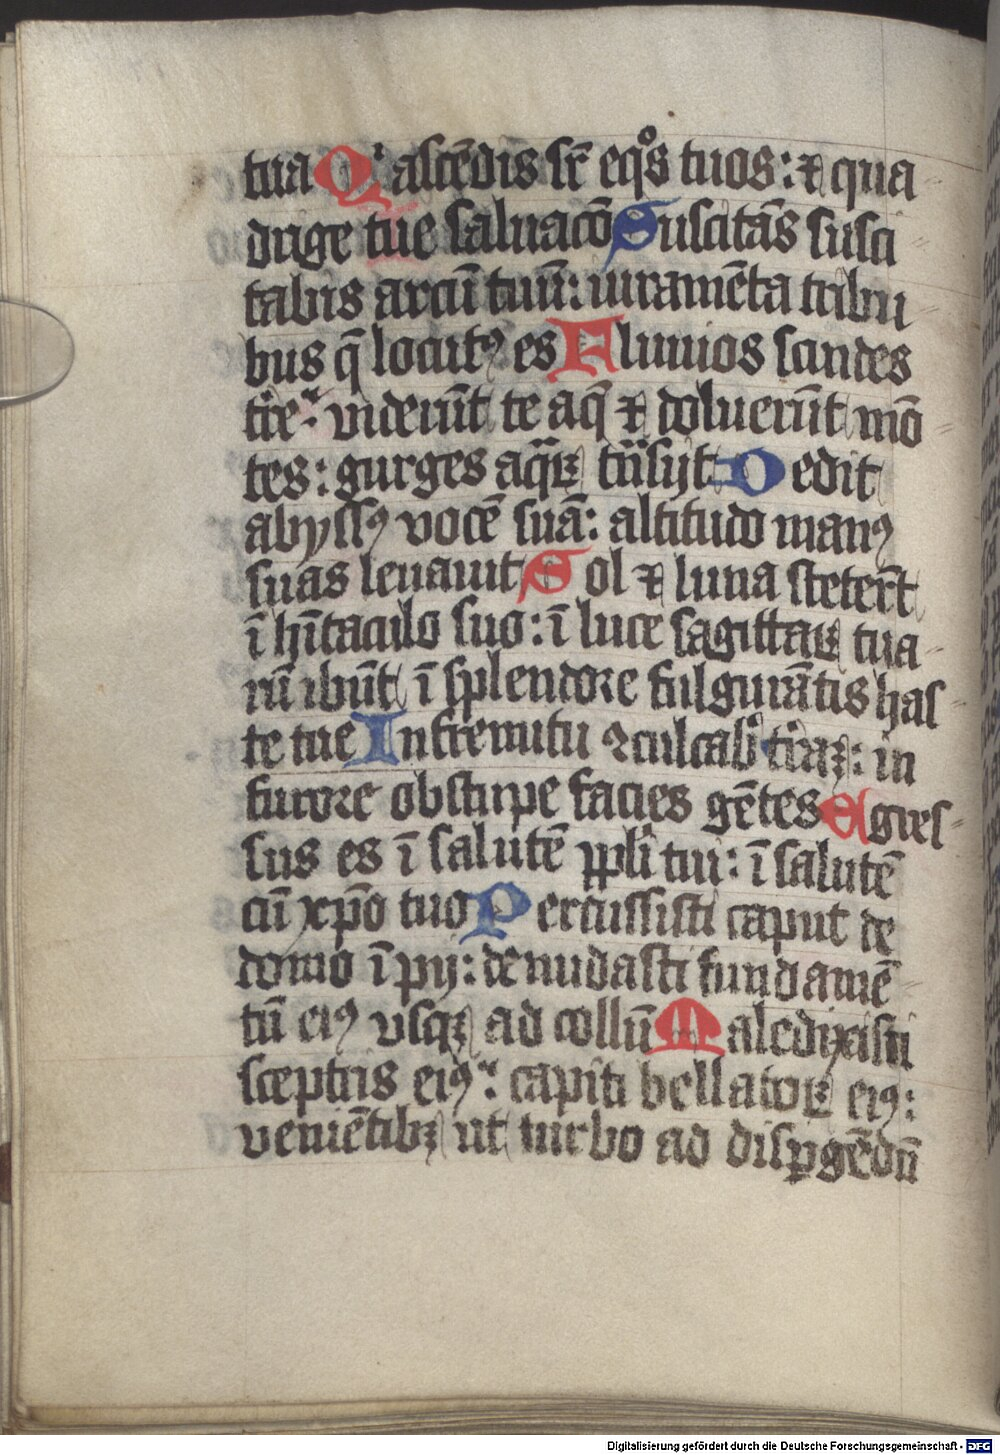 tua Qͥ ascēdis sr̄ eqͦs tuos: ⁊ qua
drige tue saluacō Suscitās susci
tabis arcū tuū: iuramēta tribu
bus q̄ locutꝰ es Fluuios scindes
tr̄e: viderūt te aq̄ ⁊ doluerūt mō
tes: gurges aqͣꝝ trͣsijt Dedit
abyssꝰ vocē suā: altitudo manꝰ
suas leuauit Sol ⁊ luna steter̄t
ī hītaculo suo: ī luce sagittaꝝ tua
rū ibūt ī splendore fulgurātis has
te tue In fremitu ꝯculcabͥ trͣaꝫ: in
furore obstupe facies gētes Egres
sus es ī salutē ppl̄i tui: ī salutē
cū xp̄o tuo Percussisti caput de
domo īpij: denudasti fundamē
tū eiꝰ vsqꝫ ad collū Maledixisti
sceptris eiꝰ: capiti bellatoꝝ eiꝰ:
veniētibꝫ ut turbo ad dispgēdū
Digitalisierung gefördert durch die Deutsche Forschungsgemeinschaft - DFG